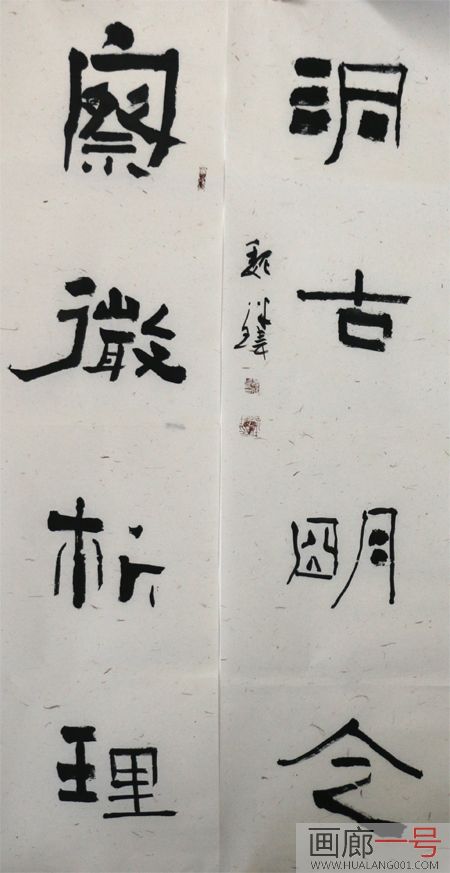 洞古明今
察微析理
画廊一号
WWW.HUALANG001.COM